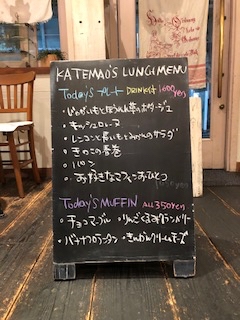 KATEMAO'S LUNGIMENU
Today's プレート DRINK付 1600yen
・じゃがいもとほうれん草のポタージュ
・キッシュロレーヌ
・レンコンと 豆の サラダ
・きのこの春巻
・パン
・お好きなマフィンおひとつ
Today's MUFFIN ALL 350yen
・チョコマーブル ・りんごくるみクランベリー
・バナナフロランタン ・きんかんクリームチーズ